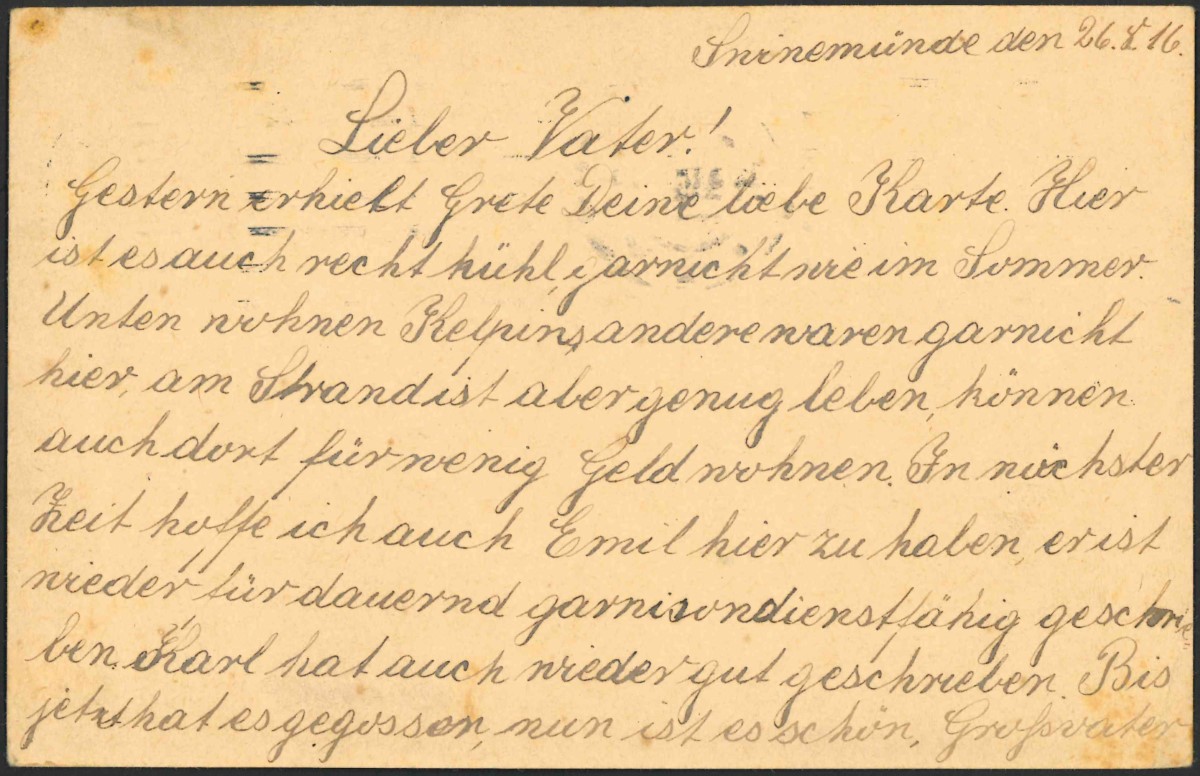 Swinemünde den 26.8.16.
Lieber Vater!
Gestern erhielt Grete Deine liebe Karte. Hier
ist es auch recht kühl, garnicht wie im Sommer.
Unten wohnen Kelpins, andere waren garnicht
hier, am Strand ist aber genug leben, können
auch dort für wenig Geld wohnen. In nächster
Zeit hoffe ich auch Emil hier zu haben, er ist
wieder für dauernd garnisondienstfähig geschrie
ben. Karl hat auch wieder gut geschrieben. Bis
jetzt hat es gegossen, nun ist es schön, Großvater